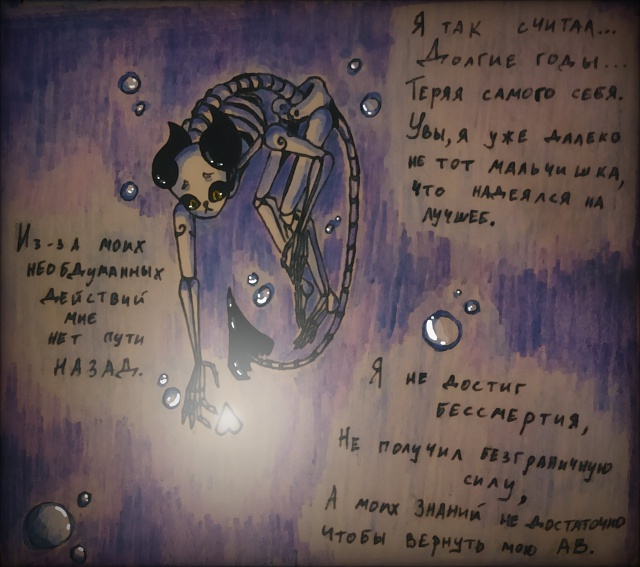 Я ТАК СЧИТАЛ...
ДОЛГИЕ ГОДЫ...
ТЕРЯЯ САМОГО СЕБЯ.
УВЫ, Я УЖЕ ДАЛЕКО
НЕ ТОТ МАЛЬЧИШКА,
ЧТО НАДЕЯЛСЯ НА
ЛУЧШЕЕ.
ИЗ-ЗА МОИХ
НЕОБДУМАННЫХ
ДЕЙСТВИЙ
МНЕ
НЕТ ПУТИ
НАЗАД.
Я НЕ ДОСТИГ
БЕССМЕРТИЯ,
НЕ ПОЛУЧИЛ БЕЗГРАНИЧНУЮ
СИЛУ,
А МОИХ ЗНАНИЙ НЕ ДОСТАТОЧНО
ЧТОБЫ ВЕРНУТЬ МОЮ АВ.